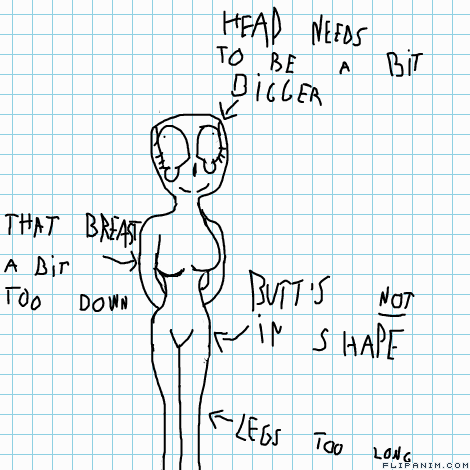 HEAD NEEDS
TO BE A BIT
BIGGER
THAT BREAST
A BIT
TOO DOWN
BUTT'S NOT
IN SHAPE
LEGS TOO LONG
FLIPANIM.COM